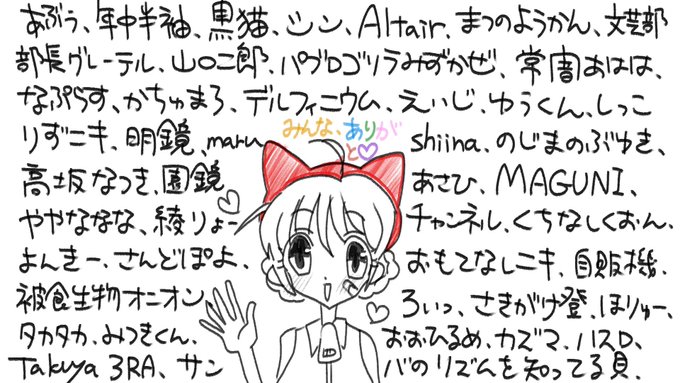 あぶう、年中半袖、黒猫、シン、Altair、まつのようかん、文芸部
部長グレーテル、山口二郎、パブロゴリラみずかぜ、常闇あはは、
なぷらす、かちゅまろ、デルフィニウム、えいじ、ゆうくん、しっこ
りずニキ、明鏡、maru
みんな、ありが
と♡
shiina、のじまのぶゆき、
高坂なつき、圓鏡
あさひ、MAGUNI、
ややなななな、綾りょー
チャンネル、くちなしくおん、
よんきー、さんどぽよ、
おもてなしニキ、自販機、
被食生物オニオン
ろいっ、さきがけ登、ほりゅー、
タカタカ、みつきくん、
おおひるめ、カズマ、ハスロ、
Takuya 3RA、サン
バのリズムを知ってる貝、